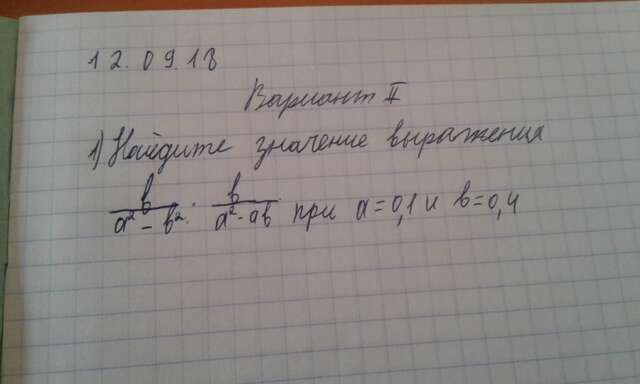 12.09.18
Вариант II
1) Найдите значение выражения
b/(a²-b²) : b/(a²-ab) при a=0,1 и b=0,4